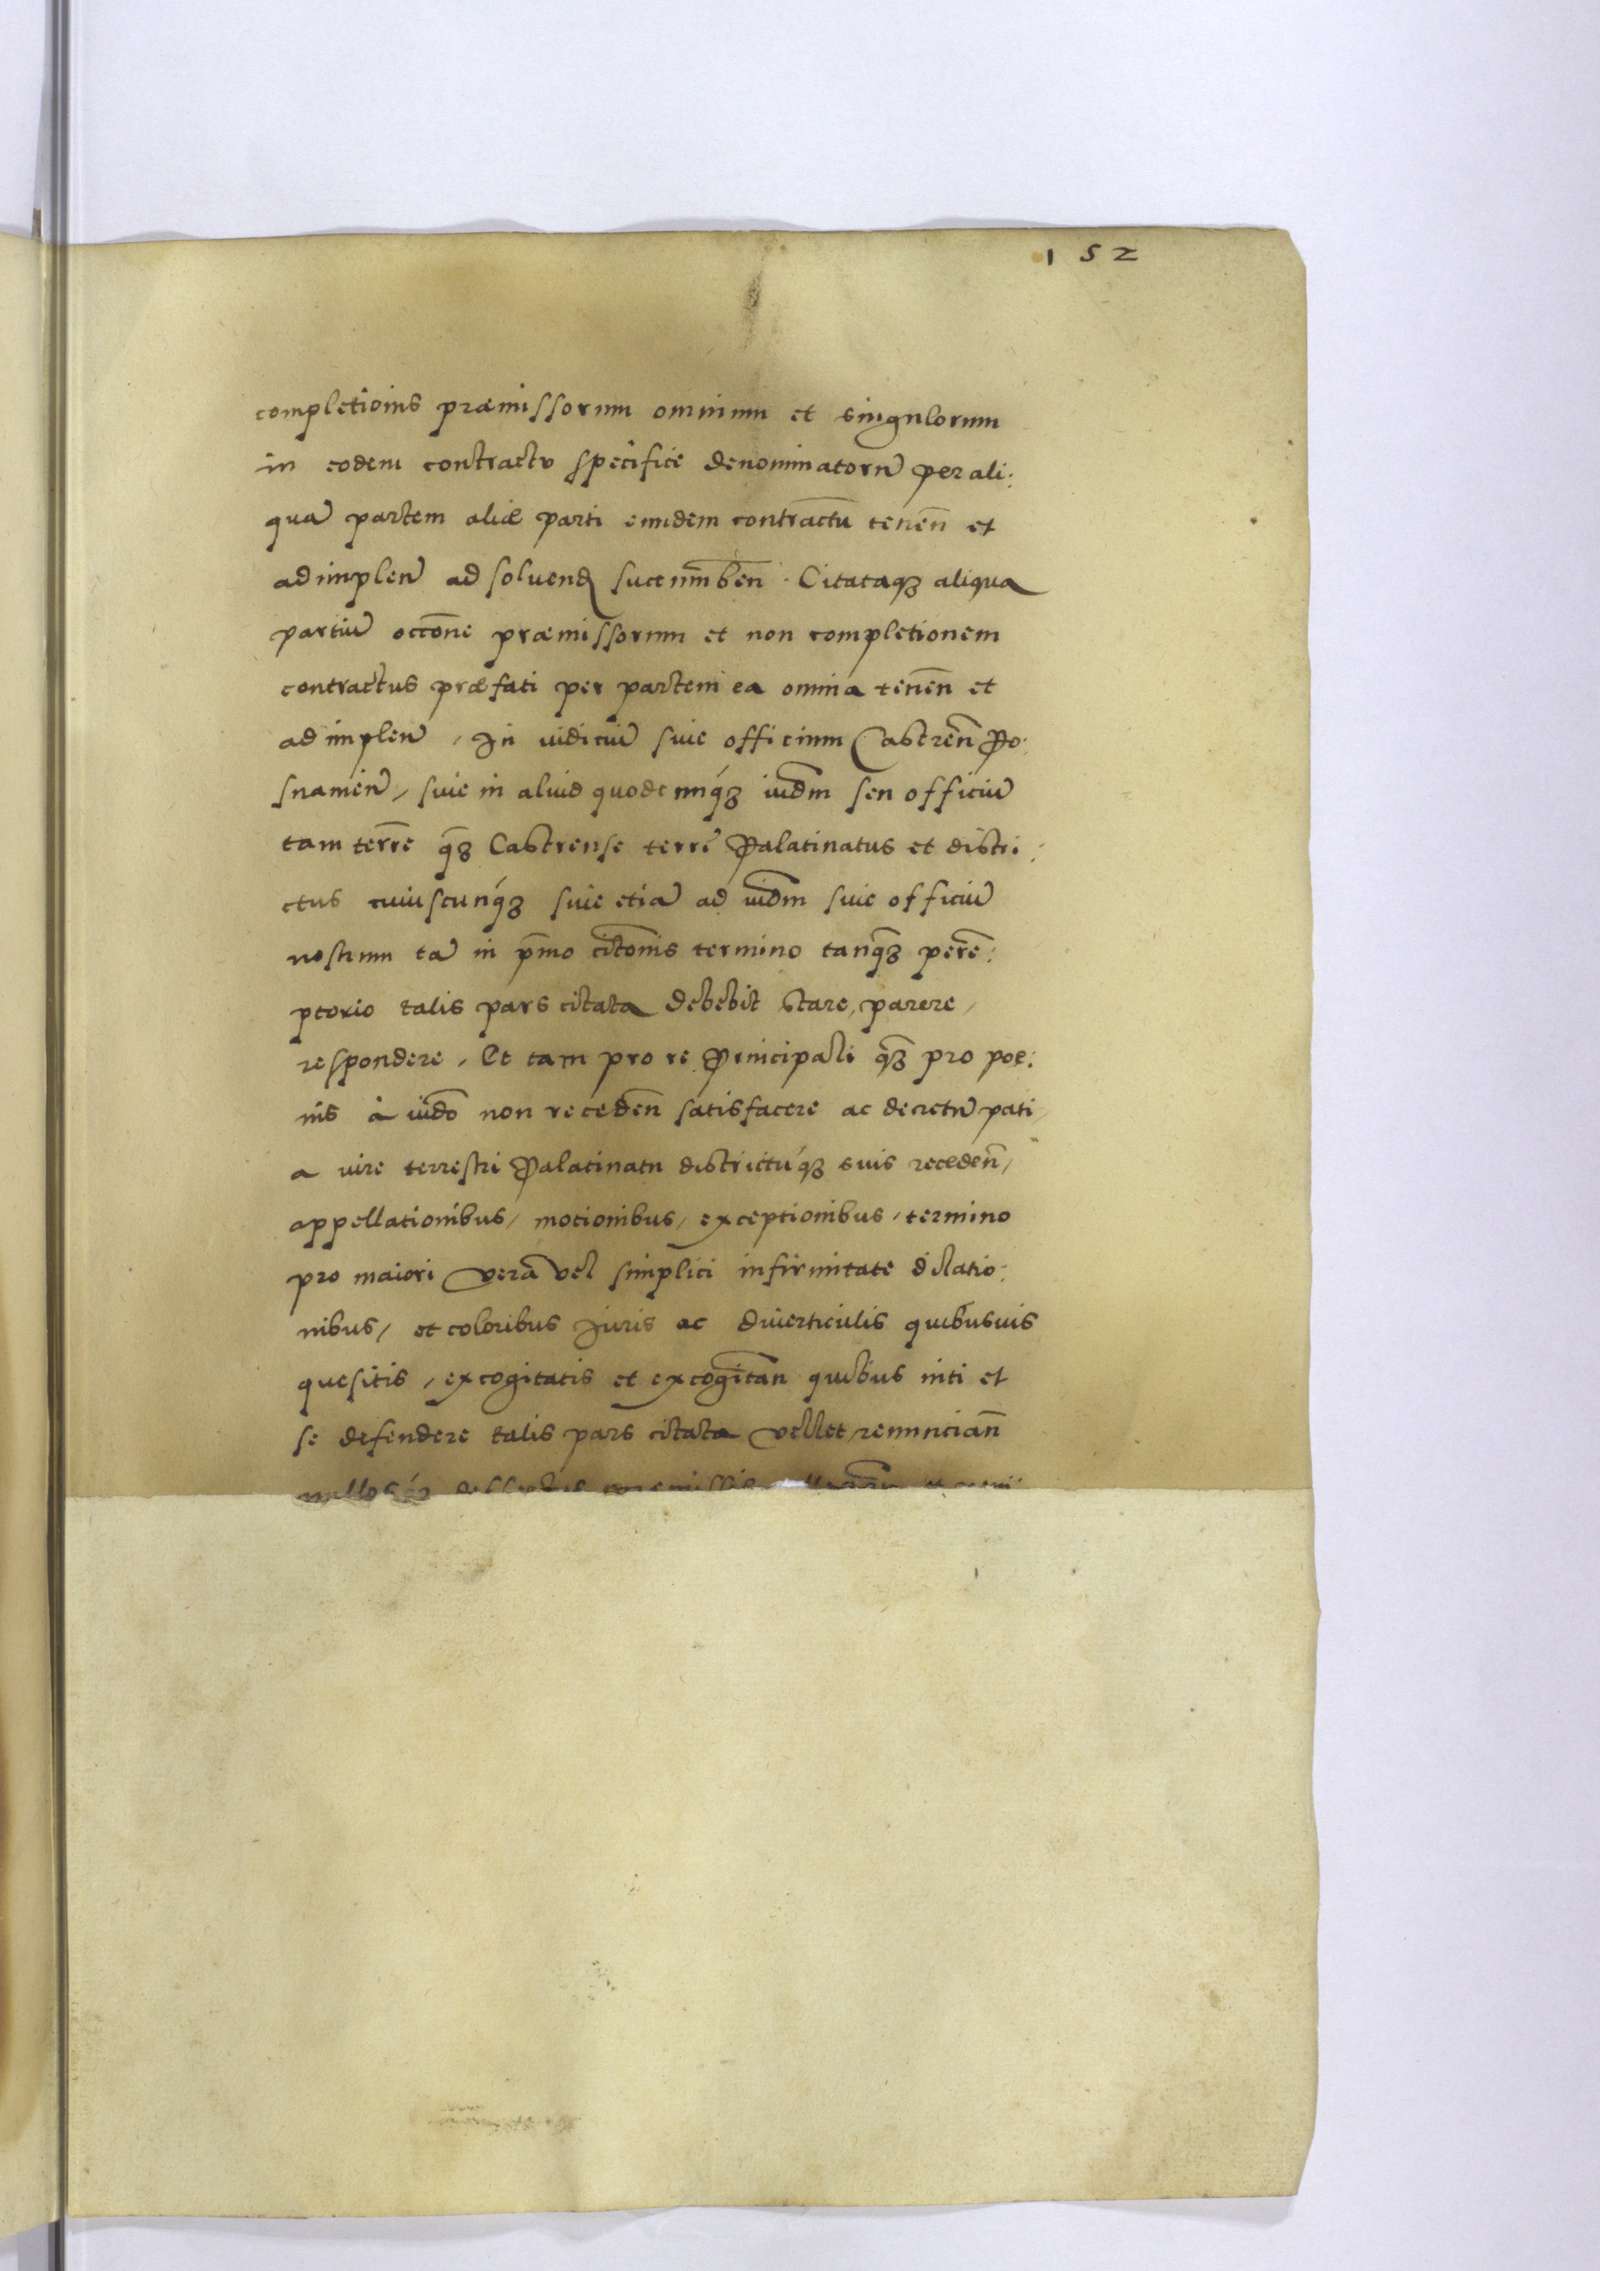 152
completionis præmissorum omnium et singulorum
in eodem contractu specifice denominatorū per ali:
quā partem aliæ parti eundem contractum tenen̄ et
adimplen̄ ad soluend succumben̄. Citataqȝ aliqua
partiū occōne præmissorum et non completionem
contractus præfati per partem ea omnia tenen̄ et
adimplen̄, In iudiciū siue officium Castren̄ Po:
snanien̄, siue in aliud quodcunqȝ iudm̄ seu officiū
tam terrē qȝ̄ Castrense terrē Palatinatus et distri:
ctus cuiuscunqȝ siue etiā ad iudm̄ siue officiū
nostrum tā in pmō citōnis termino tanqȝ̄ perē:
ptorio talis pars citata debebit stare, parere,
respondere, Et tam pro re Principali qȝ̄ pro poe:
nis à iudō non receden̄ satisfacere ac decretū pati,
a iure terrestri Palatinatu districtuqȝ suis receden̄,
appellationibus, motionibus, exceptionibus, termino
pro maiori verā vel simplici infirmitate dilatio:
nibus, et coloribus Juris ac diuerticulis quibusuis
quesitis, excogitatis et excogitan̄ quibus niti et
se defendere talis pars citata vellet, renuncian̄